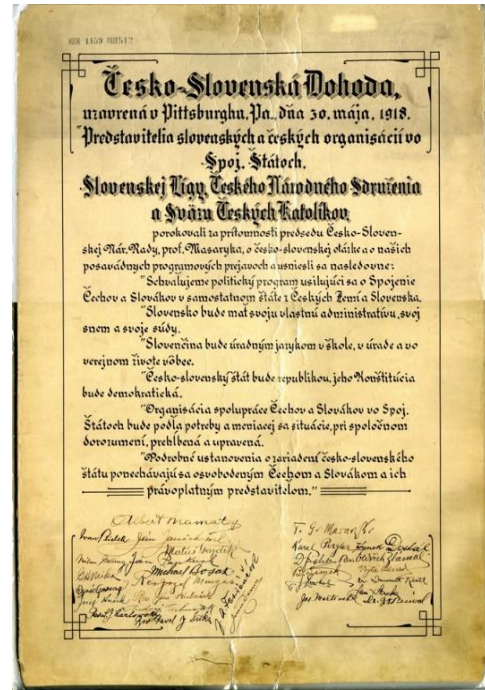 Česko-Slovenská Dohoda,
uzavrená v Pittsburghu, Pa., dňa 30. mája, 1918.
Predstavitelia slovenských a českých organisácií vo
Spoj. Štátoch,
Slovenskej Ligy, Českého Národného Sdruženia
a Sväzu Českých Katolíkov,
porokovali za prítomnosti predsedu Česko-Sloven-
skej Nár. Rady, prof. Masaryka, o česko-slovenskej otázke a o našich
posavádných programových prejavoch a usniesli sa nasledovne:
"Schvaľujeme politický program usilujúci sa o Spojenie
Čechov a Slovákov v samostatnom štáte z Českých Zemí a Slovenska.
"Slovensko bude mať svoju vlastnú administratívu, svoj
snem a svoje súdy.
"Slovenčina bude úradným jazykom v škole, v úrade a vo
verejnom živote vôbec.
"Česko-slovenský štát bude republikou, jeho Konštitúcia
bude demokratická.
"Organisácia spolupráce Čechov a Slovákov vo Spoj.
Štátoch bude podľa potreby a meniacej sa situácie, pri spoločnom
dorozumení, prehlbená a upravená.
"Podrobné ustanovenia o zariadení česko-slovenského
štátu ponechávajú sa osvobodeným Čechom a Slovákom a ich
právoplatným predstaviteľom."
Albert Mamatey
T. G. Masaryk
Ivan Bielek
Karel Pergler
Matúš Gazdík
Milan Getting
Michael Bosák